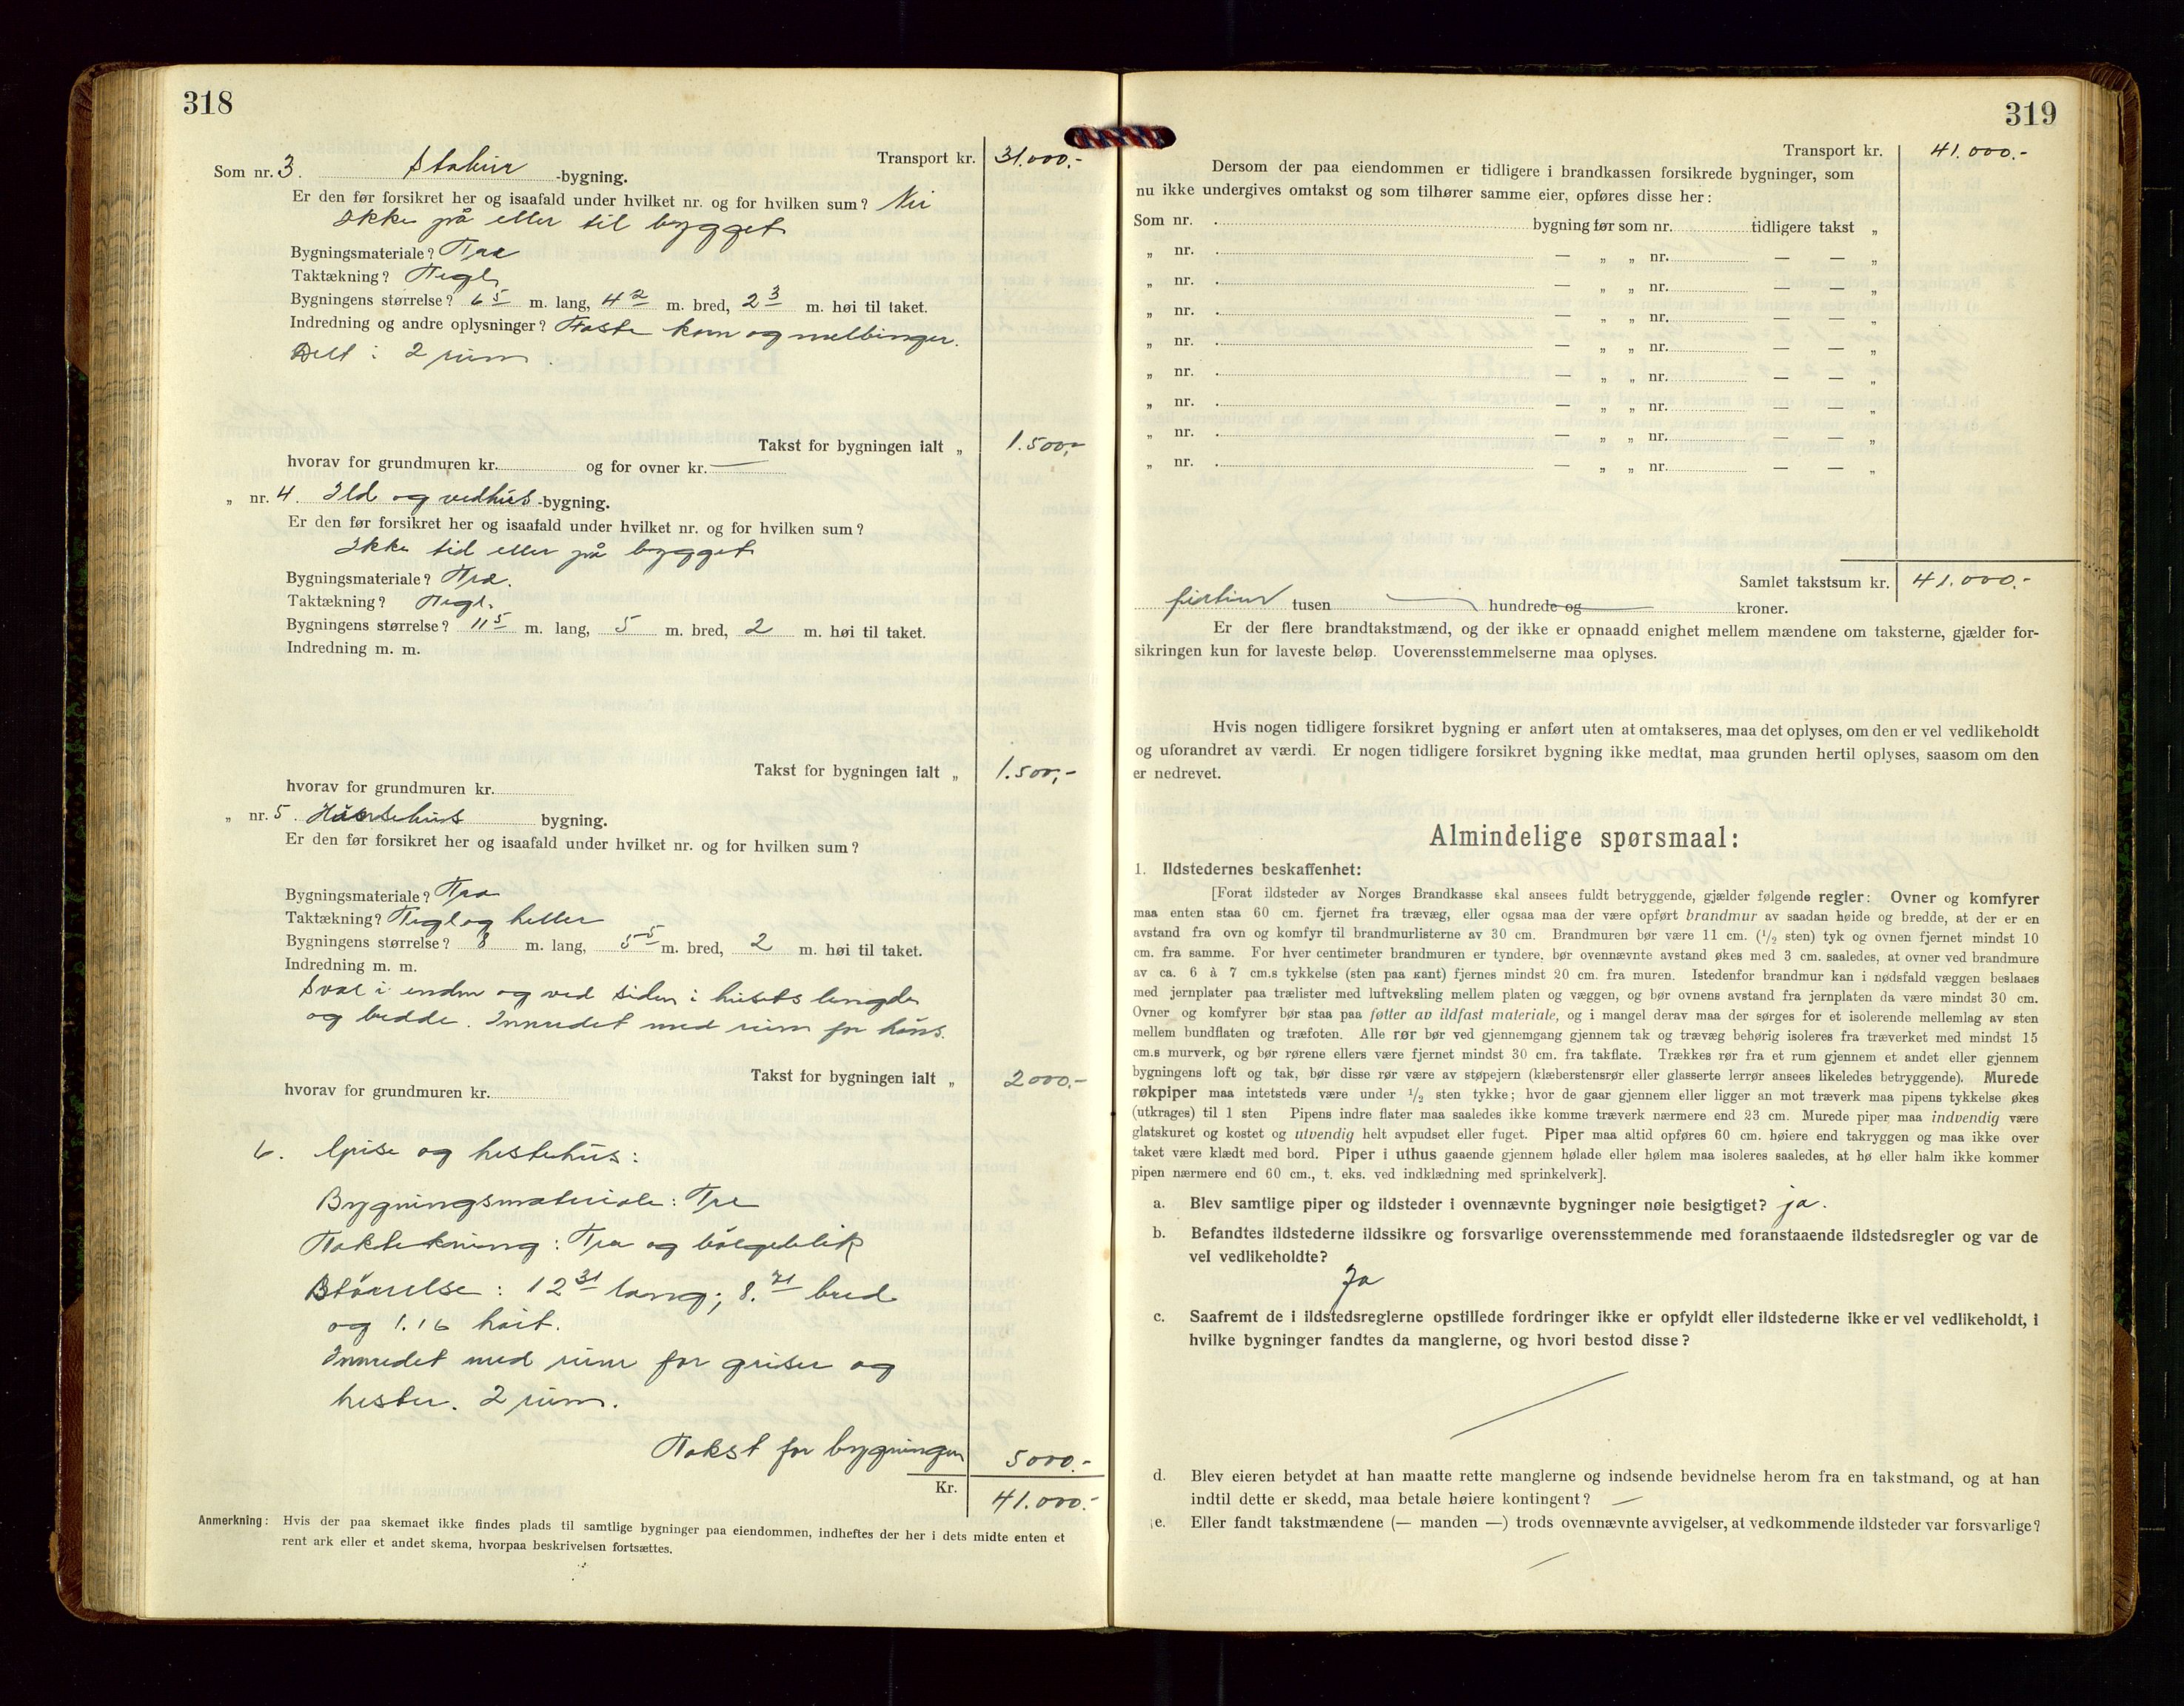 318
Transport kr. 31.000.-
Som nr. 3. Stabur -bygning.
Er den før forsikret her og isaafald under hvilket nr. og for hvilken sum? Nei
Ikke på eller til bygget
Bygningsmateriale? Træ
Taktækning? Tegl
Bygningens størrelse? 6 5 m. lang, 4 2 m. bred, 2 3 m. høi til taket.
Indredning og andre oplysninger? Faste korn og melbinger.
Delt i 2 rum
Takst for bygningen ialt „ 1.500,-
hvorav for grundmuren kr. og for ovner kr. —
„ nr. 4. Ild og vedhus -bygning.
Er den før forsikret her og isaafald under hvilket nr. og for hvilken sum?
Ikke tid eller på bygget
Bygningsmateriale? Træ.
Taktækning? Tegl.
Bygningens størrelse? 11 5 m. lang, 5 m. bred, 2 m. høi til taket.
Indredning m. m.
Takst for bygningen ialt „ 1.500,-
hvorav for grundmuren kr.
„ nr. 5. bygning.
Er den før forsikret her og isaafald under hvilket nr. og for hvilken sum?
Bygningsmateriale? Træ
Taktækning? Tegl og heller
Bygningens størrelse? 8 m. lang, 5 5 m. bred, 2 m. høi til taket.
Indredning m. m.
Sval i enden og ved siden i husets lengde
og bredde. Innredet med rum for høns.
Takst for bygningen ialt „ 2000.-
hvorav for grundmuren kr.
6. Grise og hestehus:
Bygningsmateriale: Tre
Taktekning: Tre og bølgeblik
Størrelse: 12 31 lang; 8. 71 bred
og 1.16 høit.
Innredet med rum for griser og
hester. 2 rum.
Takst for bygningen 5000.-
Kr. 41.000.-
Anmerkning: Hvis der paa skemaet ikke findes plads til samtlige bygninger paa eiendommen, indheftes der her i dets midte enten et
rent ark eller et andet skema, hvorpaa beskrivelsen fortsættes.
319
Transport kr. 41.000.-
Dersom der paa eiendommen er tidligere i brandkassen forsikrede bygninger, som
nu ikke undergives omtakst og som tilhører samme eier, opføres disse her:
Som nr. bygning før som nr. tidligere takst „
„ nr. — „ „ nr. — — „
„ nr. — „ „ nr. — — „
„ nr. — „ „ nr. — — „
„ nr. — „ „ nr. — — „
„ nr. — „ „ nr. — — „
„ nr. — „ „ nr. — — „
„ nr. — „ „ nr. — — „
„ nr. — „ „ nr. — — „
Samlet takstsum kr. 41.000.-
tusen — hundrede og — kroner.
Er der flere brandtakstmænd, og der ikke er opnaadd enighet mellem mændene om taksterne, gjælder for-
sikringen kun for laveste beløp. Uoverensstemmelserne maa oplyses.
Hvis nogen tidligere forsikret bygning er anført uten at omtakseres, maa det oplyses, om den er vel vedlikeholdt
og uforandret av værdi. Er nogen tidligere forsikret bygning ikke medtat, maa grunden hertil oplyses, saasom om den
er nedrevet.
Almindelige spørsmaal:
1. Ildstedernes beskaffenhet:
[Forat ildsteder av Norges Brandkasse skal ansees fuldt betryggende, gjælder følgende regler: Ovner og komfyrer
maa enten staa 60 cm. fjernet fra trævæg, eller ogsaa maa der være opført brandmur av saadan høide og bredde, at der er en
avstand fra ovn og komfyr til brandmurlisterne av 30 cm. Brandmuren bør være 11 cm. (1/2 sten) tyk og ovnen fjernet mindst 10
cm. fra samme. For hver centimeter brandmuren er tyndere, bør ovennævnte avstand økes med 3 cm. saaledes, at ovner ved brandmure
av ca. 6 à 7 cm.s tykkelse (sten paa kant) fjernes mindst 20 cm. fra muren. Istedenfor brandmur kan i nødsfald væggen beslaaes
med jernplater paa trælister med luftveksling mellem platen og væggen, og bør ovnens avstand fra jernplaten da være mindst 30 cm.
Ovner og komfyrer bør staa paa føtter av ildfast materiale, og i mangel derav maa der sørges for et isolerende mellemlag av sten
mellem bundflaten og træfoten. Alle rør bør ved gjennemgang gjennem tak og trævæg behørig isoleres fra træverket med mindst 15
cm.s murverk, og bør rørene ellers være fjernet mindst 30 cm. fra takflate. Trækkes rør fra et rum gjennem et andet eller gjennem
bygningens loft og tak, bør disse rør være av støpejern (klæberstensrør eller glasserte lerrør ansees likeledes betryggende). Murede
røkpiper maa intetsteds være under 1/2 sten tykke; hvor de gaar gjennem eller ligger an mot træverk maa pipens tykkelse økes
(utkrages) til 1 sten Pipens indre flater maa saaledes ikke komme træverk nærmere end 23 cm. Murede piper maa indvendig være
glatskuret og kostet og utvendig helt avpudset eller fuget. Piper maa altid opføres 60 cm. høiere end takryggen og maa ikke over
taket være klædt med bord. Piper i uthus gaaende gjennem hølade eller hølem maa isoleres saaledes, at hø eller halm ikke kommer
pipen nærmere end 60 cm., t. eks. ved indklædning med sprinkelverk].
a. Blev samtlige piper og ildsteder i ovennævnte bygninger nøie besigtiget? ja.
b. Befandtes ildstederne ildssikre og forsvarlige overensstemmende med foranstaaende ildstedsregler og var de
vel vedlikeholdte?
Ja
c. Saafremt de i ildstedsreglerne opstillede fordringer ikke er opfyldt eller ildstederne ikke er vel vedlikeholdt, i
hvilke bygninger fandtes da manglerne, og hvori bestod disse?
d. Blev eieren betydet at han maatte rette manglerne og indsende bevidnelse herom fra en takstmand, og at han
indtil dette er skedd, maa betale høiere kontingent? —
e. Eller fandt takstmændene (— manden —) trods ovennævnte avvigelser, at vedkommende ildsteder var forsvarlige?
—